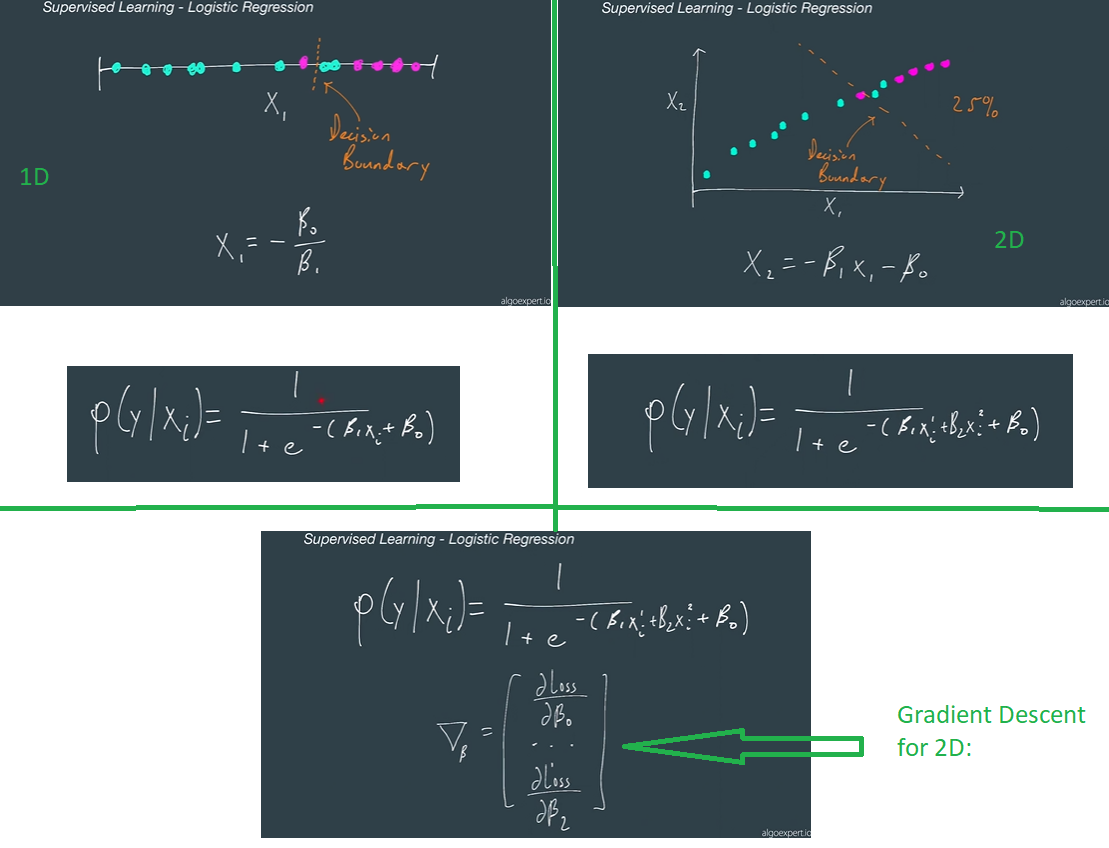 Supervised Learning - Logistic Regression
X₁
Decision
Boundary
1D
X₁ = - β₀/β₁
algoexpert.io
p(y|xᵢ) = 1 / (1 + e^-(β₁xᵢ + β₀))
Supervised Learning - Logistic Regression
X₂
25%
Decision
Boundary
X₁
2D
X₂ = - β₁x₁ - β₀
algoexpert.io
p(y|xᵢ) = 1 / (1 + e^-(β₁xᵢ¹ + β₂xᵢ² + β₀))
Supervised Learning - Logistic Regression
p(y|xᵢ) = 1 / (1 + e^-(β₁xᵢ¹ + β₂xᵢ² + β₀))
∂Loss
∂β₀
∇β = [ ... ]
∂Loss
∂β₂
algoexpert.io
Gradient Descent
for 2D: